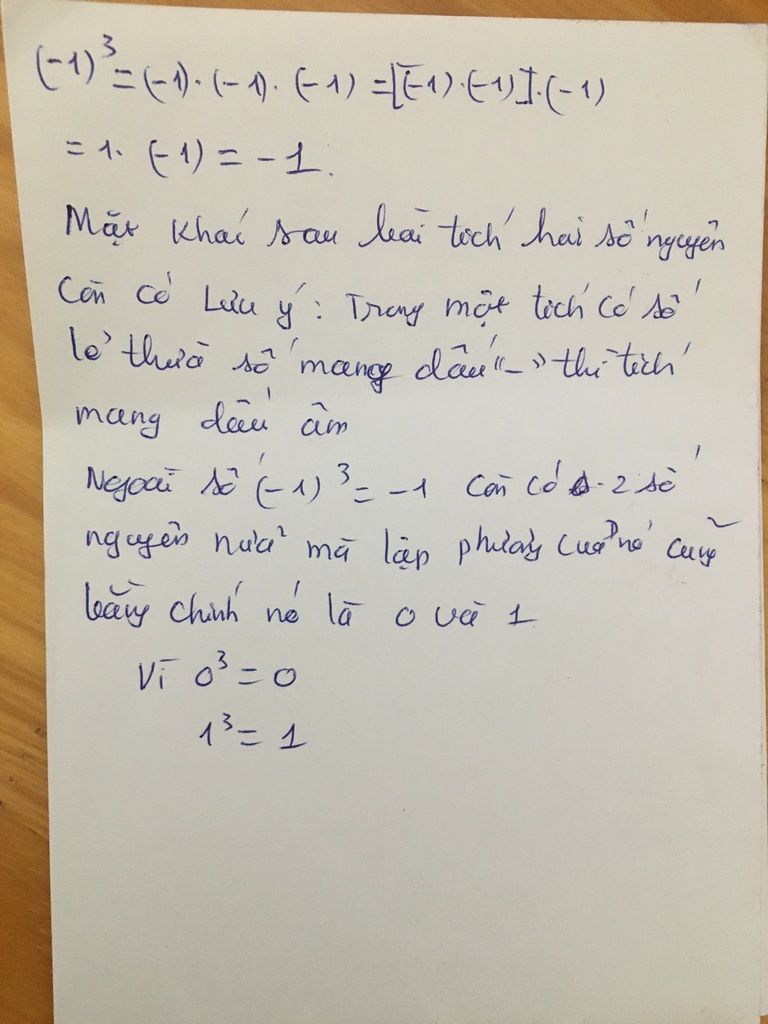 (-1)³ = (-1) · (-1) · (-1) = [(-1) · (-1)] · (-1)
= 1 · (-1) = -1.
Mặt khác sau bài tích hai số nguyên
Còn có Lưu ý : Trong một tích có số
lẻ thừa số mang dấu "-" thì tích
mang dấu âm
Ngoài số (-1)³ = -1 còn có 2 số
nguyên nữa mà lập phương của nó cũng
bằng chính nó là 0 và 1
Vì 0³ = 0
1³ = 1